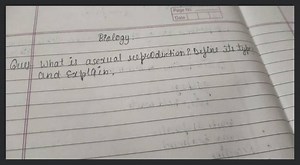 Page No.
Date
Biology.
Ques What is asexual reproduction? Define its types
and explain.